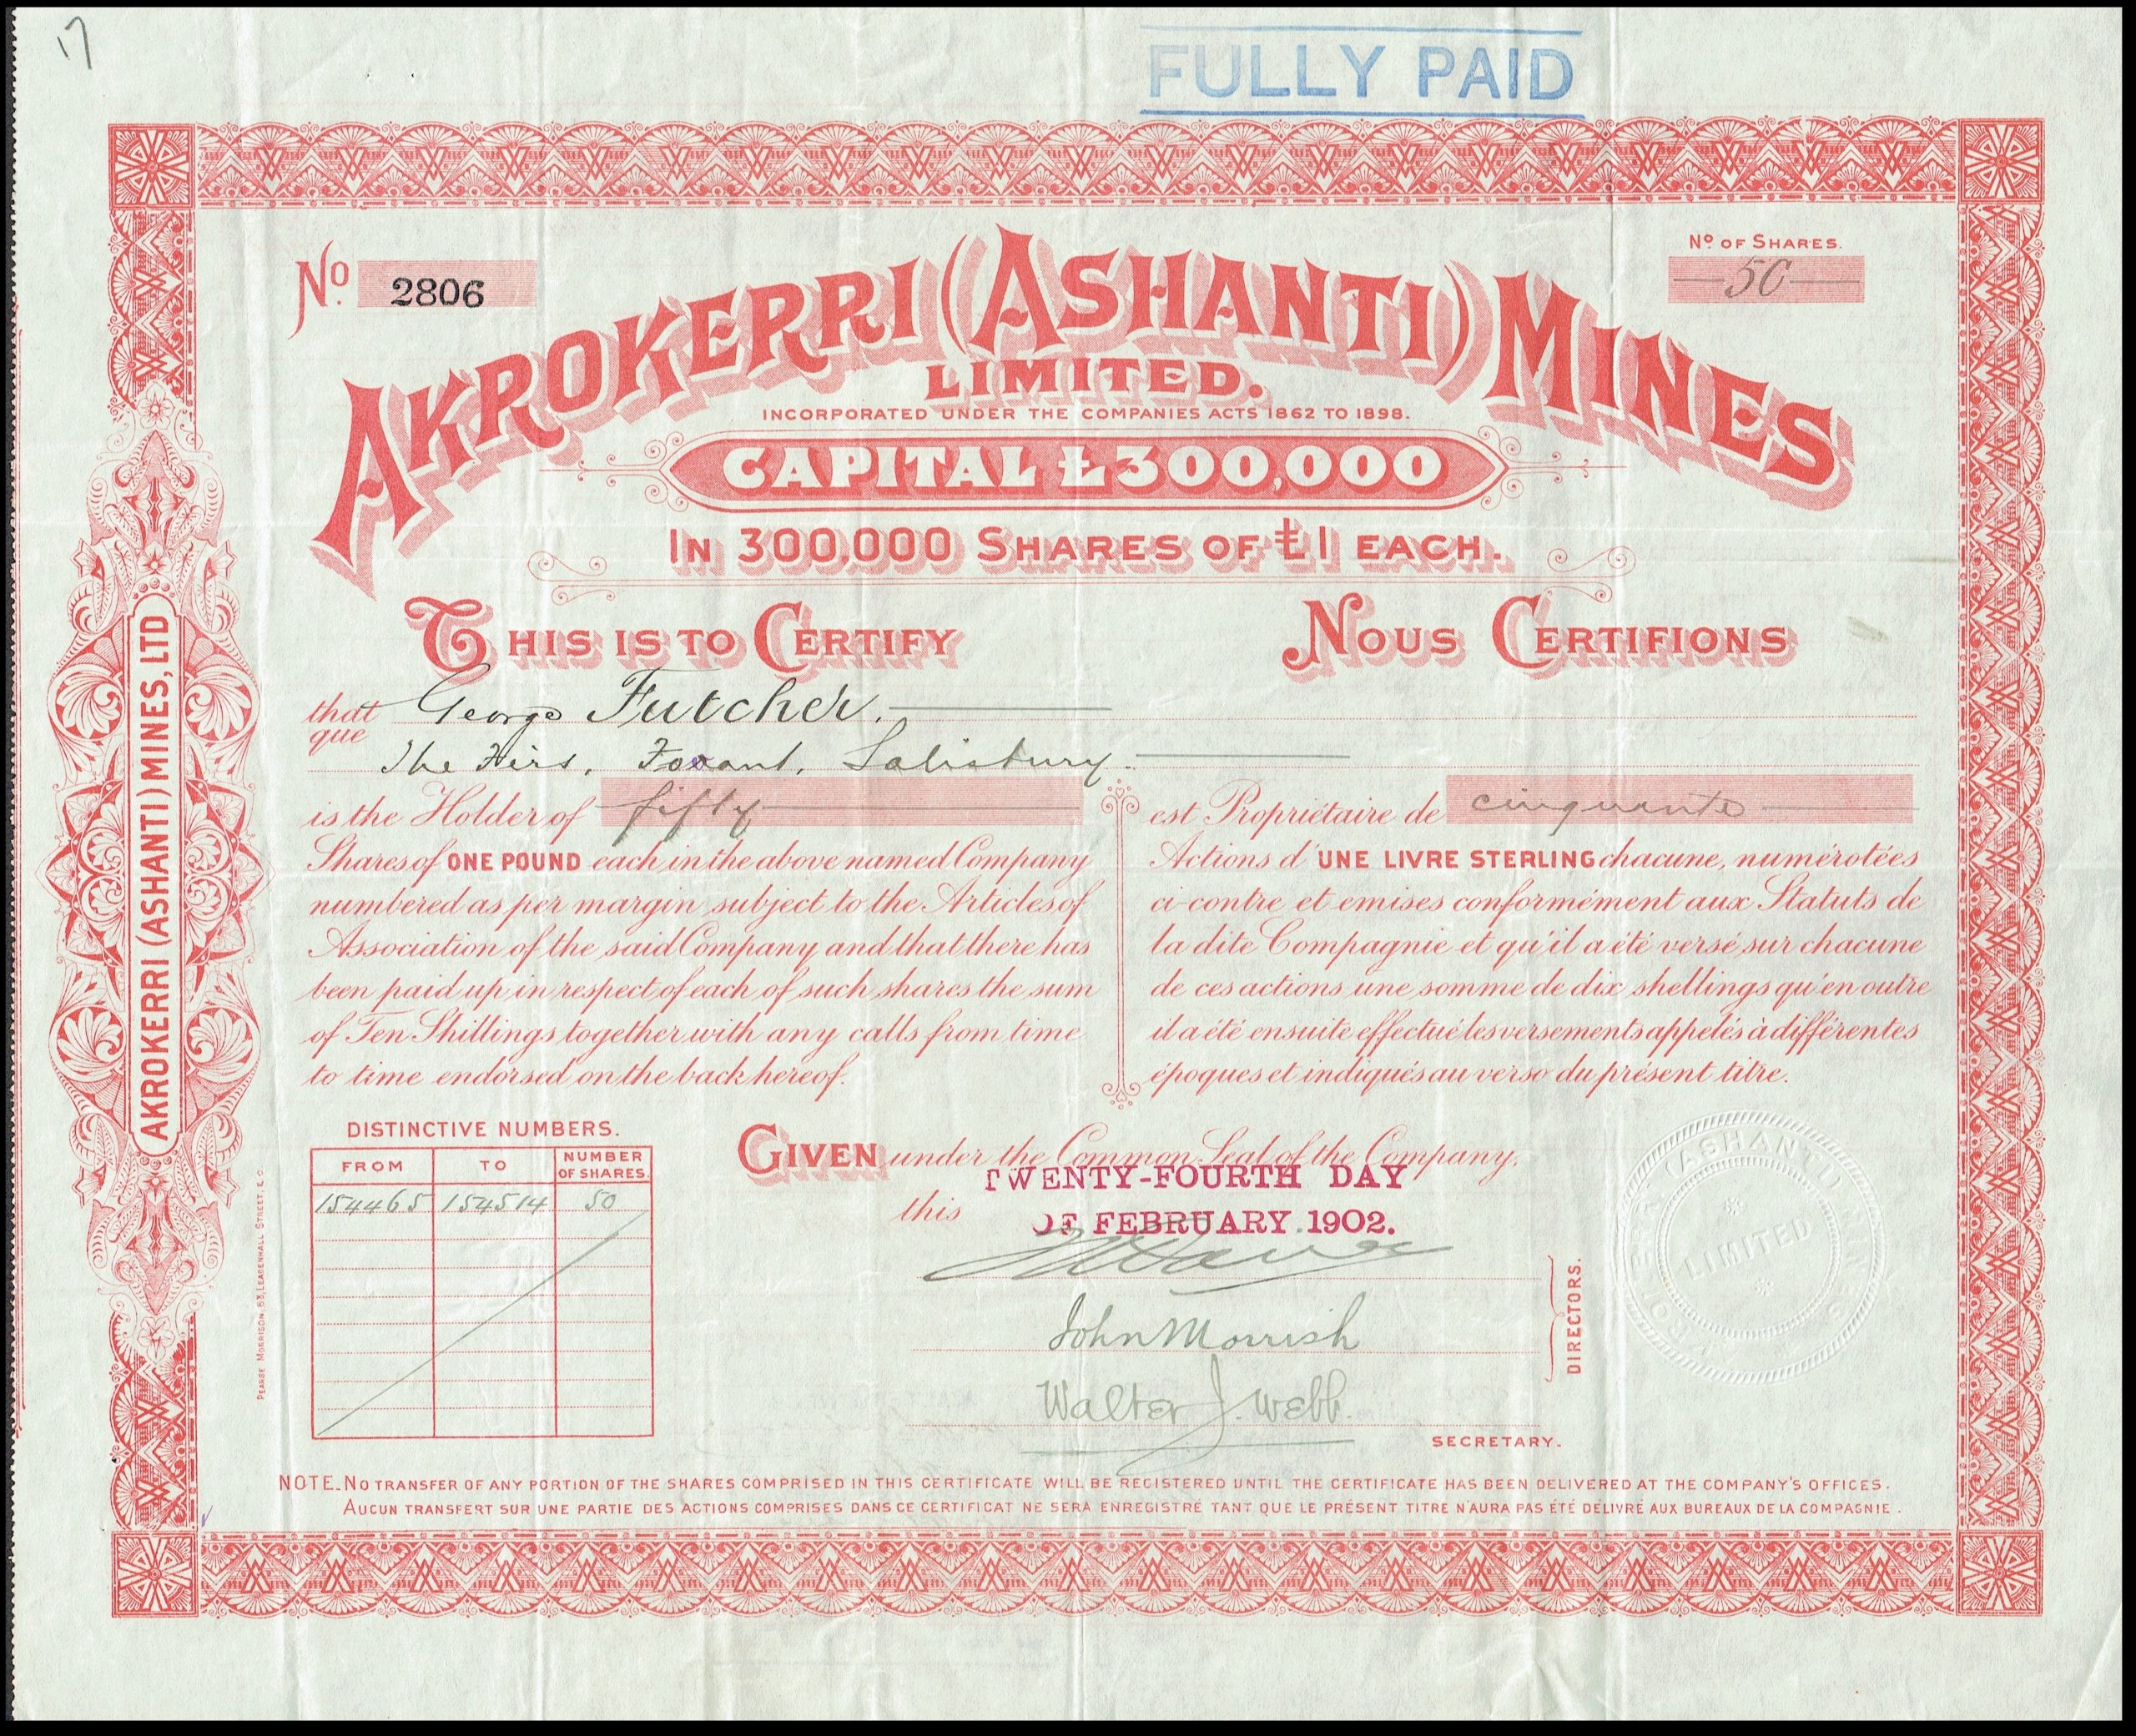 17
FULLY PAID
No. 2806
No. OF SHARES.
50
AKROKERRI (ASHANTI) MINES
LIMITED.
INCORPORATED UNDER THE COMPANIES ACTS 1862 TO 1898.
CAPITAL £300,000
IN 300,000 SHARES OF £1 EACH.
THIS IS TO CERTIFY
NOUS CERTIFIONS
that George Futcher.
que
The Firs, Fovant, Salisbury.
is the Holder of fifty
Shares of ONE POUND each in the above named Company
numbered as per margin subject to the Articles of
Association of the said Company and that there has
been paid up in respect of each of such shares the sum
of Ten Shillings together with any calls from time
to time endorsed on the back hereof.
est Propriétaire de cinquante
Actions d'UNE LIVRE STERLING chacune, numérotées
ci-contre et emises conformément aux Statuts de
la dite Compagnie et qu'il a été versé sur chacune
de ces actions une somme de dix shellings qu'en outre
il a été ensuite effectué les versements appelés à différentes
époques et indiqués au verso du présent titre.
DISTINCTIVE NUMBERS.
FROM TO NUMBER OF SHARES.
154465 154514 50
GIVEN under the Common Seal of the Company,
this TWENTY-FOURTH DAY
OF FEBRUARY 1902.
John Morrish
DIRECTORS.
Walter J. Webb.
SECRETARY.
(ASHANTI)
LIMITED
NOTE. NO TRANSFER OF ANY PORTION OF THE SHARES COMPRISED IN THIS CERTIFICATE WILL BE REGISTERED UNTIL THE CERTIFICATE HAS BEEN DELIVERED AT THE COMPANY'S OFFICES.
AUCUN TRANSFERT SUR UNE PARTIE DES ACTIONS COMPRISES DANS CE CERTIFICAT NE SERA ENREGISTRÉ TANT QUE LE PRÉSENT TITRE N'AURA PAS ÉTÉ DÉLIVRÉ AUX BUREAUX DE LA COMPAGNIE.
AKROKERRI (ASHANTI) MINES, LTD
PEARSE MORRISON, 83, LEADENHALL STREET, E.C.